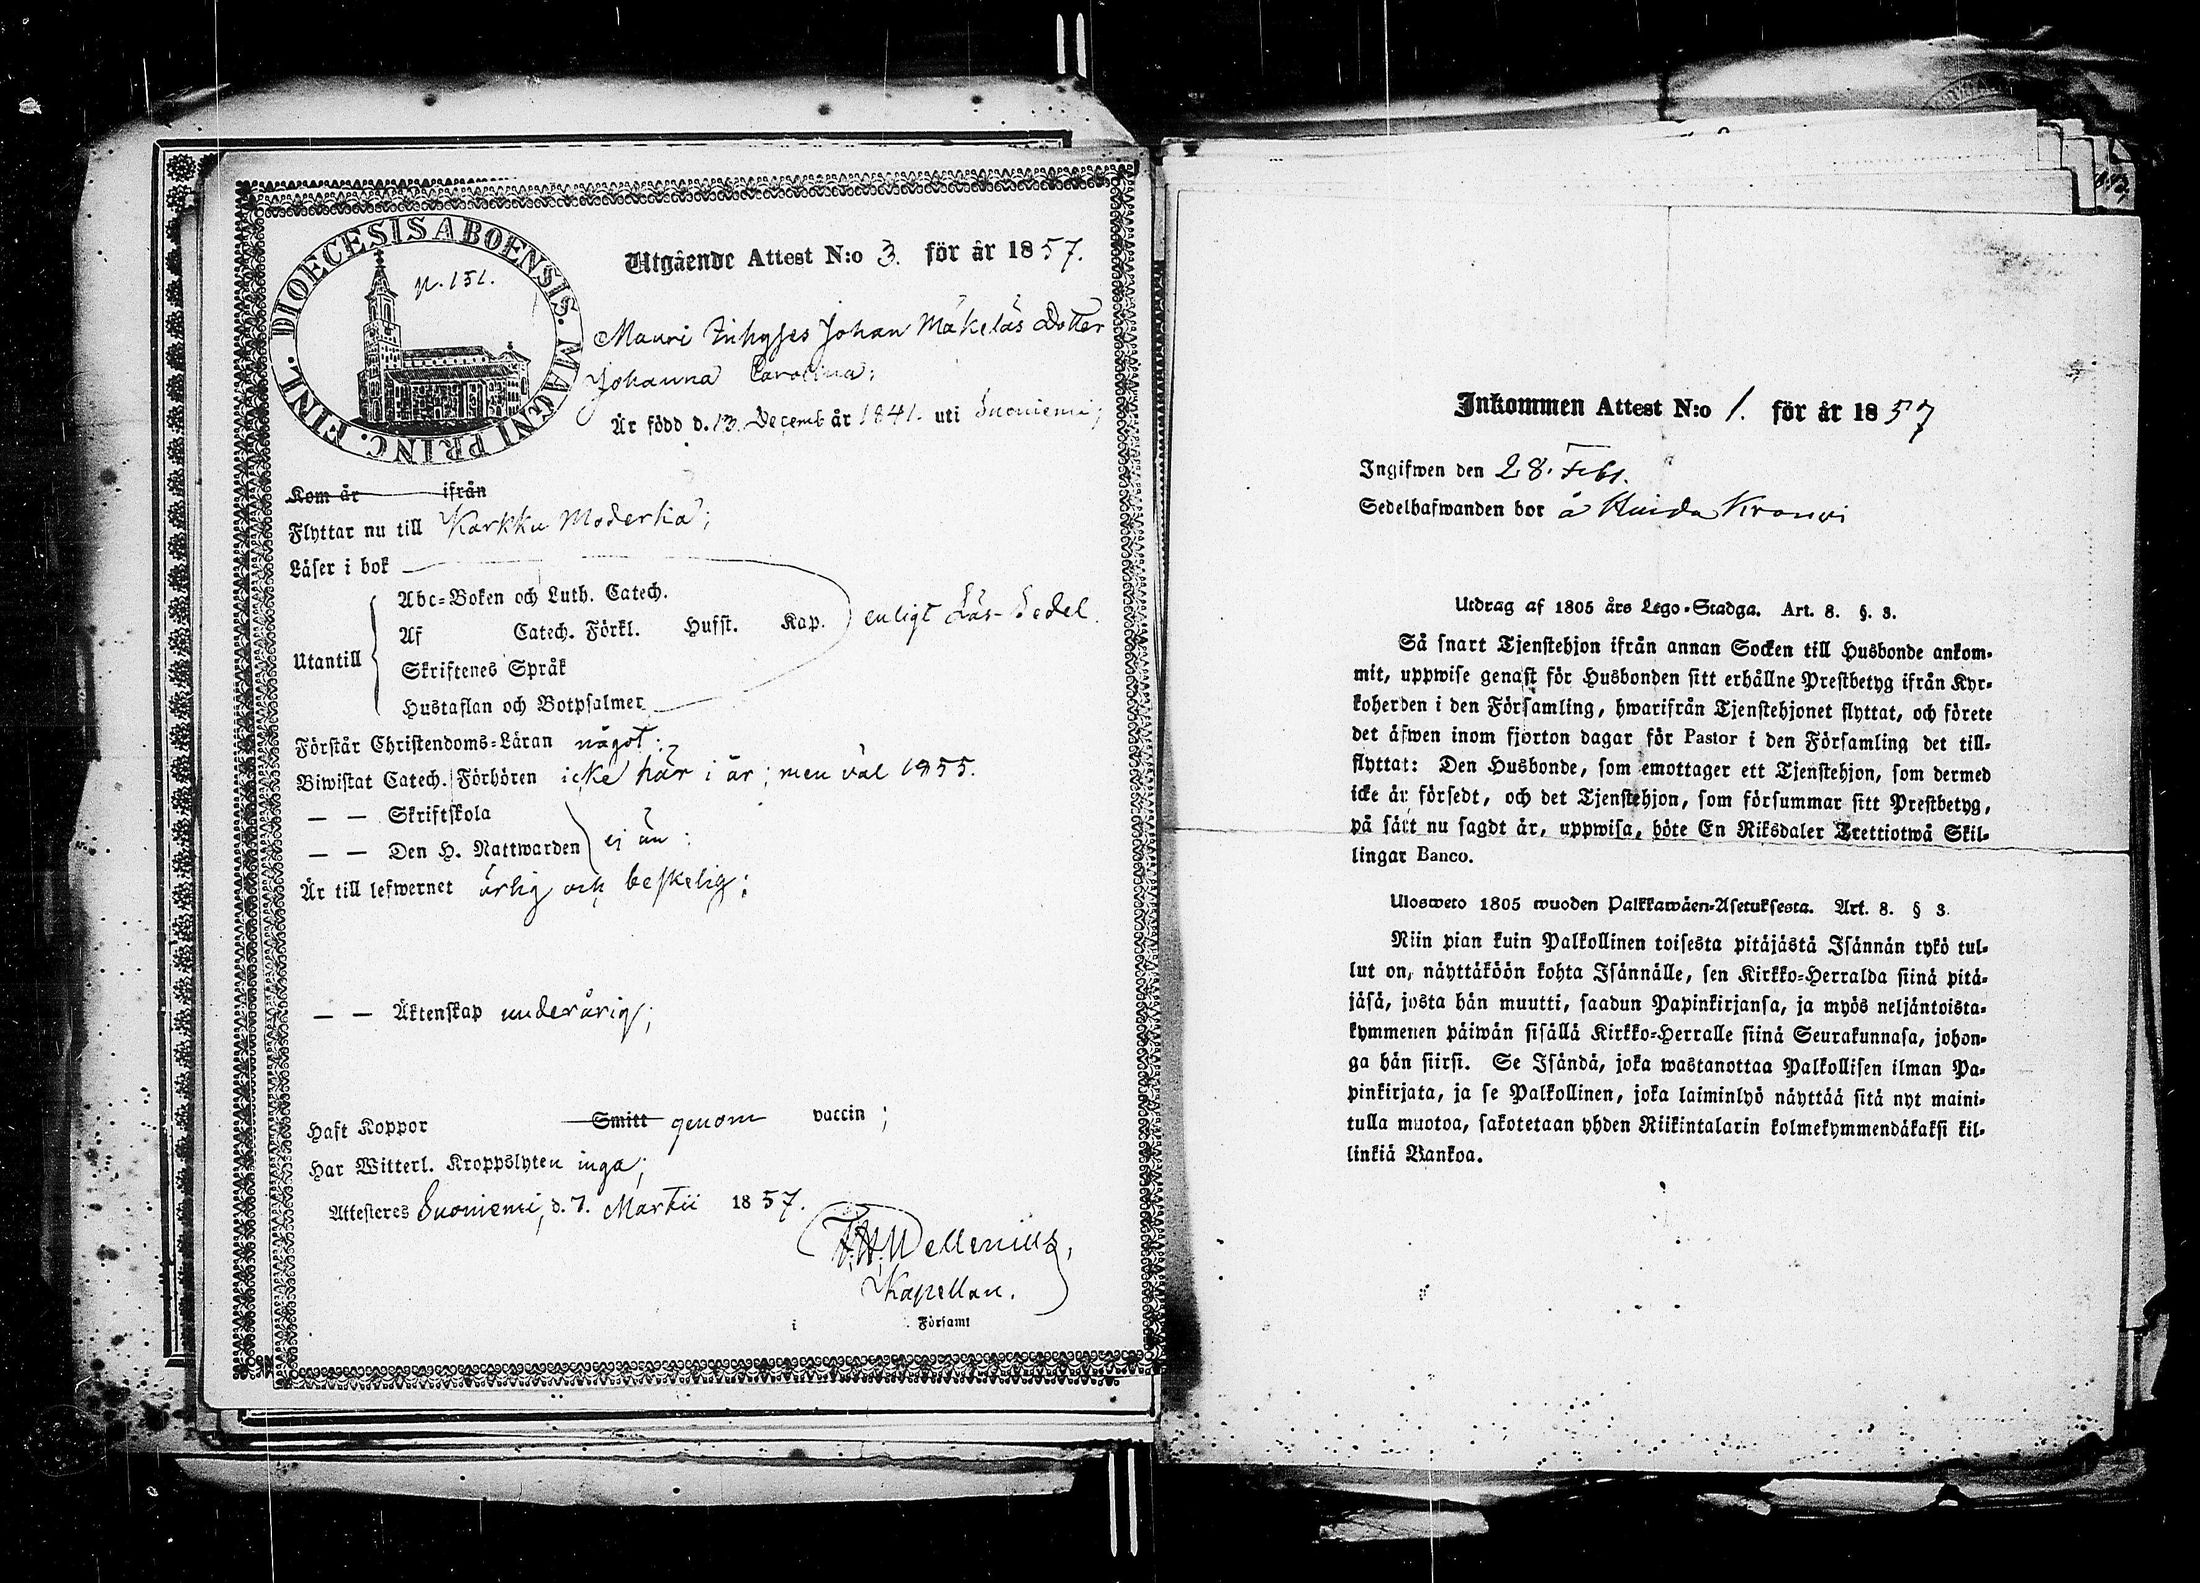 DIOECESIS ABOENSIS. MAGNI PRINC. FINL.
p. 151.
Utgående Attest N:o 3. för år 1857.
Mauri Inhyses Johan Mäkeläs Dotter
Johanna Carolina;
Är född d. 13. Decemb år 1841. uti Suoniemi;
Kom år ifrån
Flyttar nu till Karkku Moderka;
Läser i bok
Abc=Boken och Luth. Catech.
Af Catech. Förkl. Hufst. Kap. enligt Läs-Sedel.
Utantill
Skriftenes Språk
Hustaflan och Botpsalmer
Förstår Christendoms=Läran något;
Biwistat Catech. Förhören icke här i år; men väl 1855.
— — Skriftskola
— — Den H. Nattwarden ej än;
Är till lefwernet ärlig och beskelig;
— — Äktenskap underårig;
Haft Koppor Smitt genom vaccin;
Har Witterl. Kroppslyten inga;
Attesteres Suoniemi, d. 7. Martii 1857.
Wellenius,
Kapellan.
i Församl
Inkommen Attest N:o 1. för år 1857
Ingifwen den 28. Feb.
Sedelhafwanden bor å
Utdrag af 1805 års Lego-Stadga. Art. 8. §. 3.
Så snart Tjenstehjon ifrån annan Socken till Husbonde ankom-
mit, uppwise genast för Husbonden sitt erhållne Prestbetyg ifrån Kyr-
koherden i den Församling, hwarifrån Tjenstehjonet flyttat, och förete
det äfwen inom fjorton dagar för Pastor i den Församling det till-
flyttat: Den Husbonde, som emottager ett Tjenstehjon, som dermed
icke är försedt, och det Tjenstehjon, som försummar sitt Prestbetyg,
på sätt nu sagdt är, uppwisa, böte En Riksdaler Trettiotwå Skil-
lingar Banco.
Ulosweto 1805 wuoden Palkkawäen=Asetuksesta. Art. 8. § 3.
Niin pian kuin Palkollinen toisesta pitäjästä Isännän tykö tul-
lut on, näyttäköön kohta Isännälle, sen Kirkko=Herralda siinä pitä-
jäsä, josta hän muutti, saadun Papinkirjansa, ja myös neljäntoista-
kymmenen päiwän sisällä Kirkko=Herralle siinä Seurakunnasa, johon-
ga hän siirsi. Se Isändä, joka wastanottaa Palkollisen ilman Pa-
pinkirjata, ja se Palkollinen, joka laiminlyö näyttää sitä nyt maini-
tulla muotoa, sakotetaan yhden Riikintalarin kolmekymmendäkaksi kil-
linkiä Bankoa.